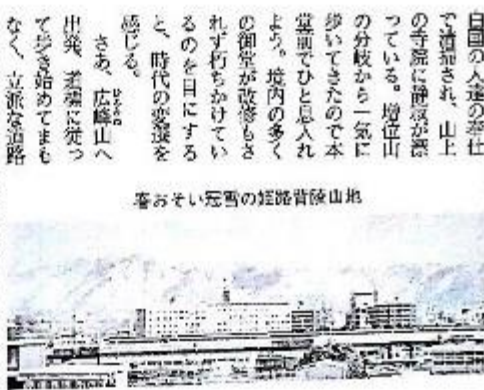 白国の人達の奉仕
で清掃され、山上
の寺院に静寂が漂
っている。増位山
の分岐から一気に
歩いてきたので本
堂前でひと息入れ
よう。境内の多く
の御堂が改修もさ
れず朽ちかけてい
るのを目にする
と、時代の変遷を
感じる。
さあ、広峰山へ
ひろみね
出発、道標に従っ
て歩き始めてまも
なく、立派な道路
春おそい冠雪の姫路背陵山地